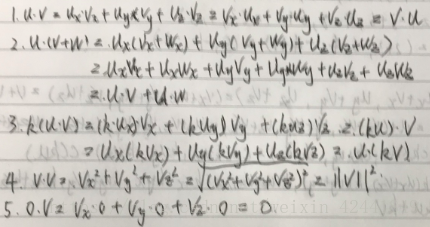 1. U·V = UxVx + UyVy + Uz·Vz = Vx·Ux + Vy·Uy + Vz·Uz = V·U
2. U·(V+W) = Ux(Vx+Wx) + Uy(Vy+Wy) + Uz(Vz+Wz)
= UxVx + UxWx + UyVy + UyWy + UzVz + UzWz
= U·V + U·W
3. k(U·V) = (kUx)Vx + (kUy)Vy + (kUz)Vz = (kU)·V
= Ux(kVx) + Uy(kVy) + Uz(kVz) = U·(kV)
4. V·V = Vx² + Vy² + Vz² = √(Vx²+Vy²+Vz²)² = ||V||²
5. 0·V = Vx·0 + Vy·0 + Vz·0 = 0